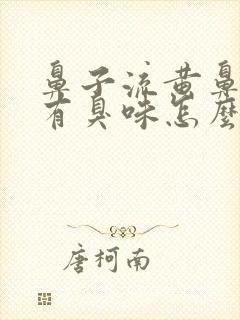 鼻子流黄鼻
有臭味怎麼
唐柯南